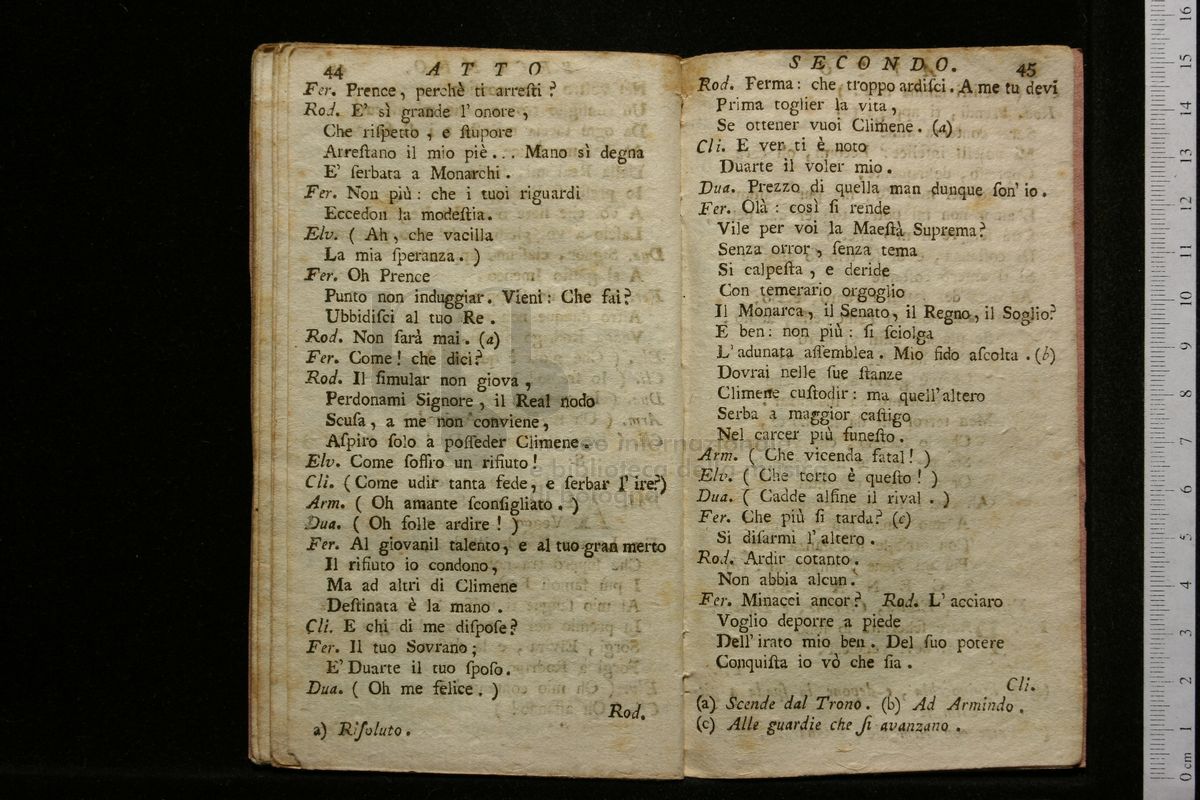 44 ATTO
Fer. Prence, perchè ti arreſti?
Rod. E' sì grande l'onore,
Che riſpetto, e ſtupore
Arreſtano il mio piè... Mano sì degna
E' ſerbata a Monarchi.
Fer. Non più: che i tuoi riguardi
Eccedon la modeſtia.
Elv. ( Ah, che vacilla
La mia ſperanza. )
Fer. Oh Prence
Punto non induggiar. Vieni: Che fai?
Ubbidiſci al tuo Re.
Rod. Non ſarà mai. (a)
Fer. Come! che dici?
Rod. Il ſimular non giova,
Perdonami Signore, il Real nodo
Scuſa, a me non conviene,
Aſpiro ſolo a poſſeder Climene.
Elv. Come ſoffro un rifiuto!
Cli. (Come udir tanta fede, e ſerbar l'ire?)
Arm. ( Oh amante ſconſigliato. )
Dua. ( Oh folle ardire! )
Fer. Al giovanil talento, e al tuo gran merto
Il rifiuto io condono,
Ma ad altri di Climene
Deſtinata è la mano.
Cli. E chi di me diſpoſe?
Fer. Il tuo Sovrano;
E' Duarte il tuo ſpoſo.
Dua. ( Oh me felice. )
Rod.
a) Riſoluto.
SECONDO. 45
Rod. Ferma: che troppo ardiſci. A me tu devi
Prima toglier la vita,
Se ottener vuoi Climene. (a)
Cli. E ver ti è noto
Duarte il voler mio.
Dua. Prezzo di quella man dunque ſon' io.
Fer. Olà: così ſi rende
Vile per voi la Maeſtà Suprema?
Senza orror, ſenza tema
Si calpeſta, e deride
Con temerario orgoglio
Il Monarca, il Senato, il Regno, il Soglio?
E ben: non più: ſi ſciolga
L'adunata aſſemblea. Mio fido aſcolta. (b)
Dovrai nelle ſue ſtanze
Climene cuſtodir: ma quell'altero
Serba a maggior caſtigo
Nel carcer più funeſto.
Arm. ( Che vicenda fatal! )
Elv. ( Che torto è queſto! )
Dua. ( Cadde alfine il rival. )
Fer. Che più ſi tarda? (c)
Si diſarmi l'altero.
Rod. Ardir cotanto.
Non abbia alcun.
Fer. Minacci ancor? Rod. L'acciaro
Voglio deporre a piede
Dell'irato mio ben. Del ſuo potere
Conquiſta io vò che ſia.
Cli.
(a) Scende dal Trono. (b) Ad Armindo.
(c) Alle guardie che ſi avanzano.